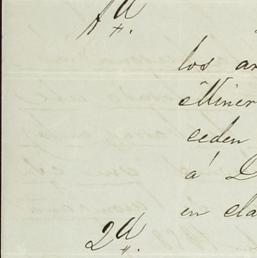 1ª.
los ar
Miner
ceden
á D
en cla
2ª.